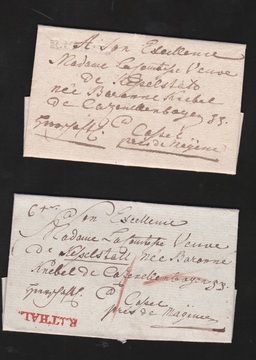 A Son Excellence
Madame La Comtesse Veuve
de Kesselstadt
née Baronne Knebel
de Cazenellenbogen
Cassel
près de Mayence
A Son Excellence
Madame La Comtesse Veuve
de Kesselstadt née Baronne
Knebel de Cazenellenbogen
Cassel
près de Mayence
R.I.THAL